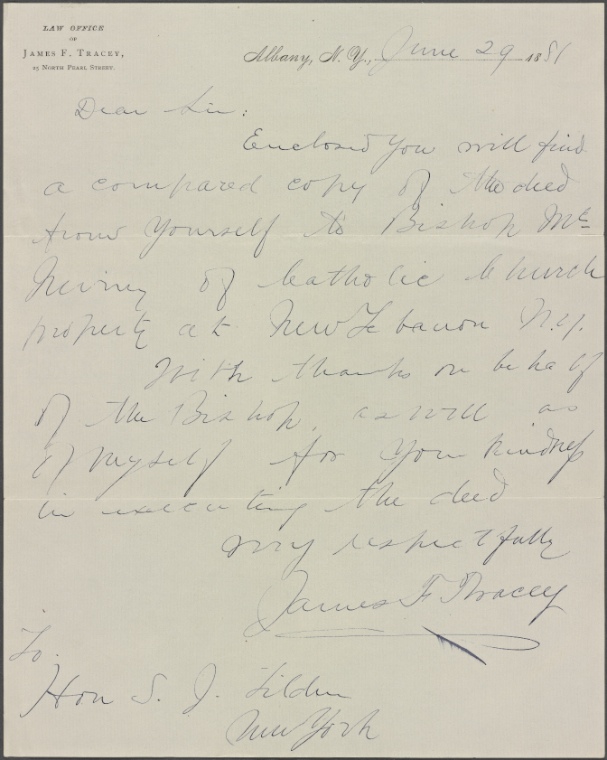 LAW OFFICE
OF
JAMES F. TRACEY,
25 NORTH PEARL STREET.
Albany, N. Y., June 29 1881
Dear Sir:
Enclosed you will find
a compared copy of the deed
from yourself to Bishop Mc
Neirny of Catholic Church
property at New Lebanon N.Y.
With thanks on behalf
of the Bishop, as well as
of myself for your kindness
in executing the deed
very respectfully
James F Tracey
To.
Hon S. J. Tilden
New York